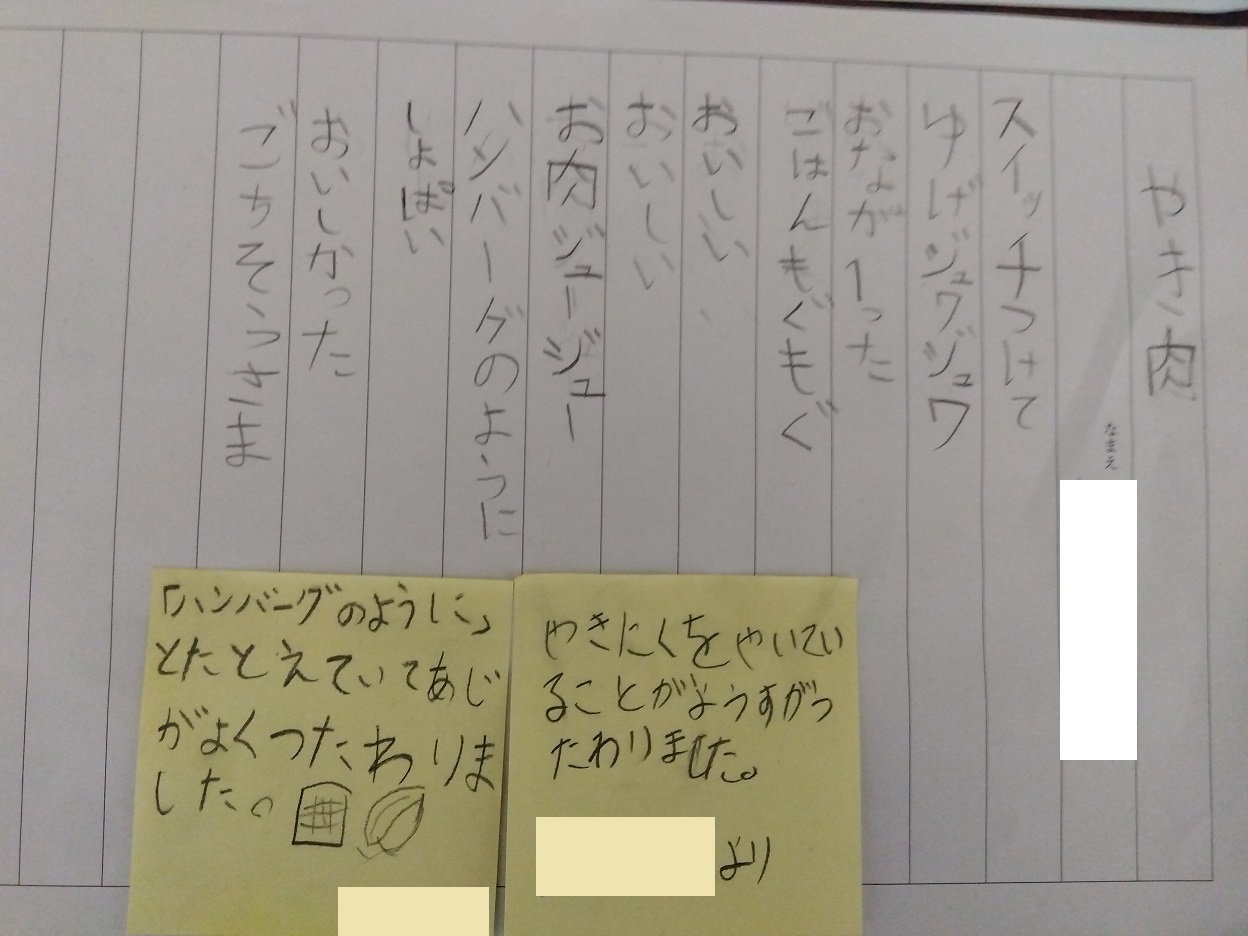 やき肉
なまえ
スイッチつけて
ゆげジュワジュワ
おなかがへった
ごはんもぐもぐ
おいしい
おいしい
お肉ジュージュー
ハンバーグのように
しょぱい
おいしかった
ごちそうさま
やきにくをやいてい
ることがようすがつ
たわりました。
より
「ハンバーグのように」
とたとえていてあじ
がよくつたわりま
した。